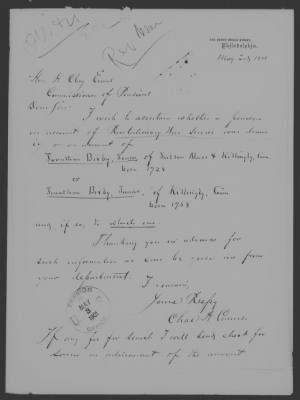 Rev War
Philadelphia,
May 2d, 1901
Hon. H. Clay Evans
Commissioner of Pensions
Dear Sir:
I wish to ascertain whether a pension
on account of Revolutionary War Service was drawn
by or on account of
Jonathan Bixby, Senior of & Killingly, Conn
born 1728
or
Jonathan Bixby, Junior, of Killingly, Conn
born 1758
and if so, to which one.
Thanking you in advance for
such information as can be given me from
your department. I remain,
Yours Respfy
Chas. H.
PENSION
MAY
3
1901
OFFICE
If any fee for search I will send check for
same on advisement of the amount